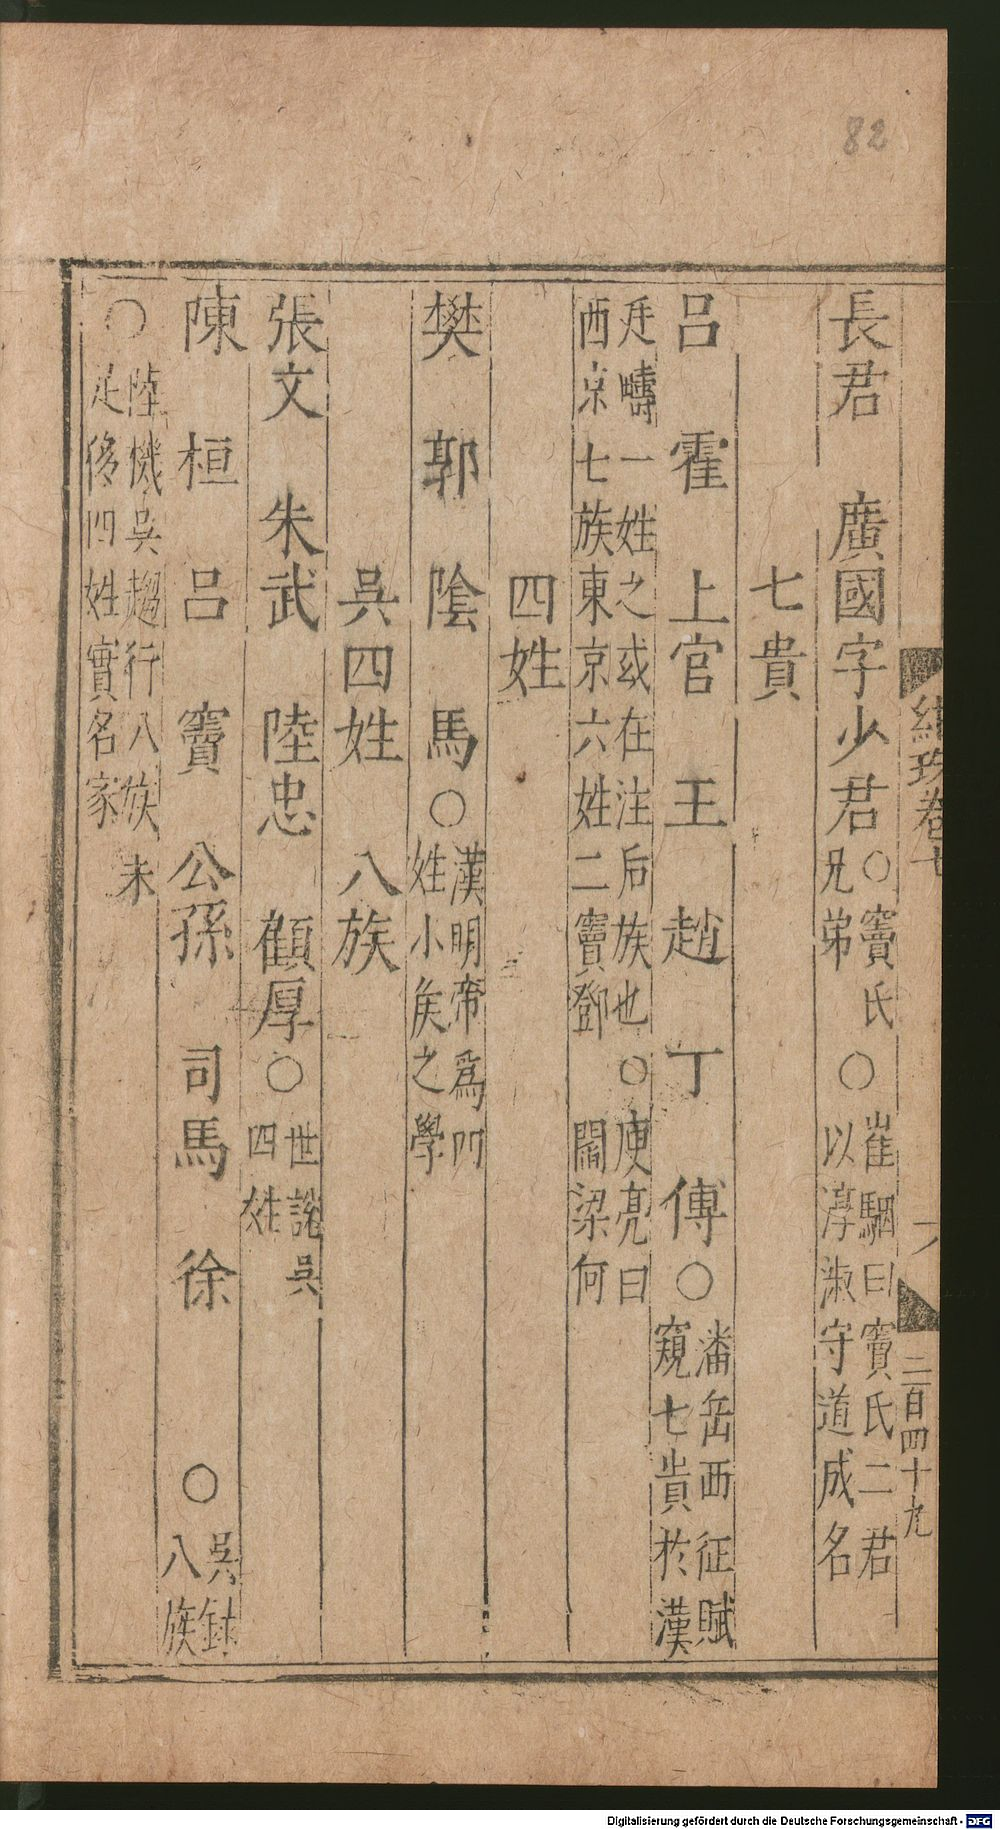 82
紺珠卷七
二百四十九
長君　廣國字少君○竇氏兄弟○崔駰曰竇氏二君以淳淑守道成名
七貴
呂　霍　上官　王　趙　丁　傅○潘岳西征賦窺七貴於漢
廷疇一姓之或在注后族也○庾亮曰西京七族東京六姓二竇鄧閻梁何
四姓
樊　郭　陰　馬○漢明帝爲四姓小矦之學
吳四姓　八族
張文　朱武　陸忠　顧厚○世說吳四姓
陳　桓　呂　竇　公孫　司馬　徐　○吳錄八族
○陸機吳趨行八族未足侈四姓實名家
Digitalisierung gefördert durch die Deutsche Forschungsgemeinschaft - DFG